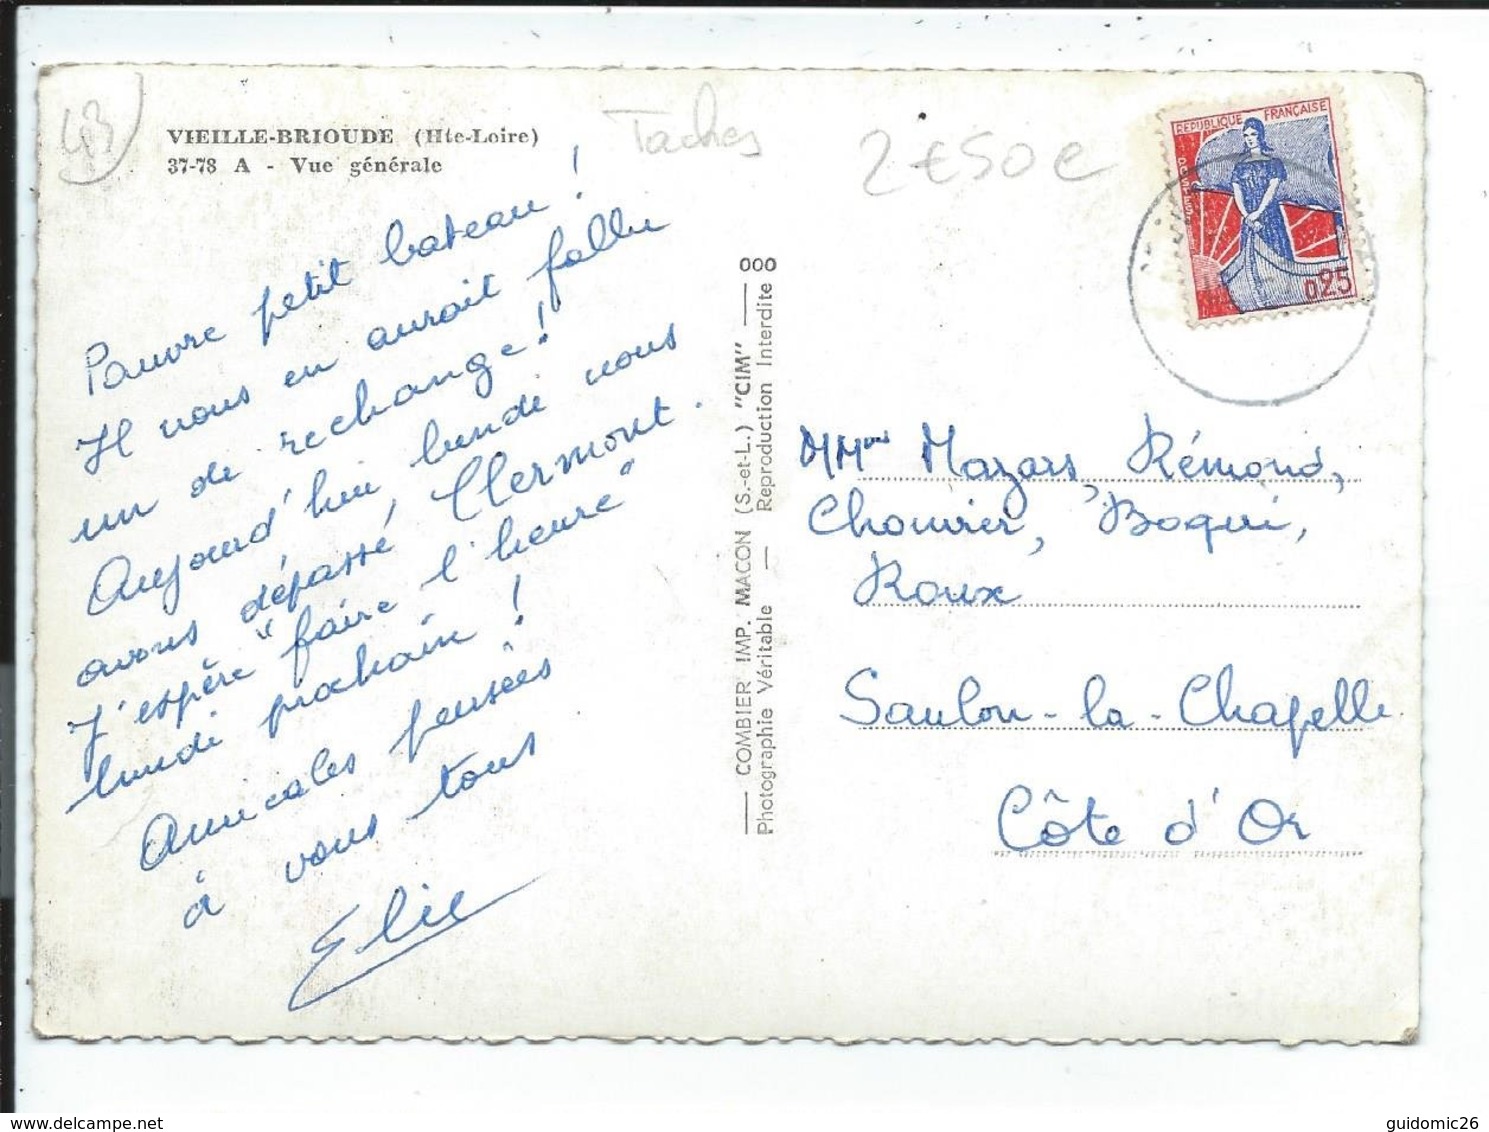 43
VIEILLE-BRIOUDE (Hte-Loire)
37-78 A - Vue générale
Taches
2€50e
REPUBLIQUE FRANÇAISE
POSTES
0,25
Pauvre petit bateau !
Il nous en aurait fallu
un de rechange !
Aujourd'hui lundi nous
avons dépassé Clermont.
J'espère "faire l'heure"
lundi prochain !
Amicales pensées
à vous tous
Elie
COMBIER IMP. MACON (S.-et-L.) "CIM" 000
Photographie Véritable — Reproduction Interdite
MMmes Mazars, Rémond,
Chouvier, Boqui,
Roux
Saulon-la-Chapelle
Côte d'Or
delcampe.net
guidomic26